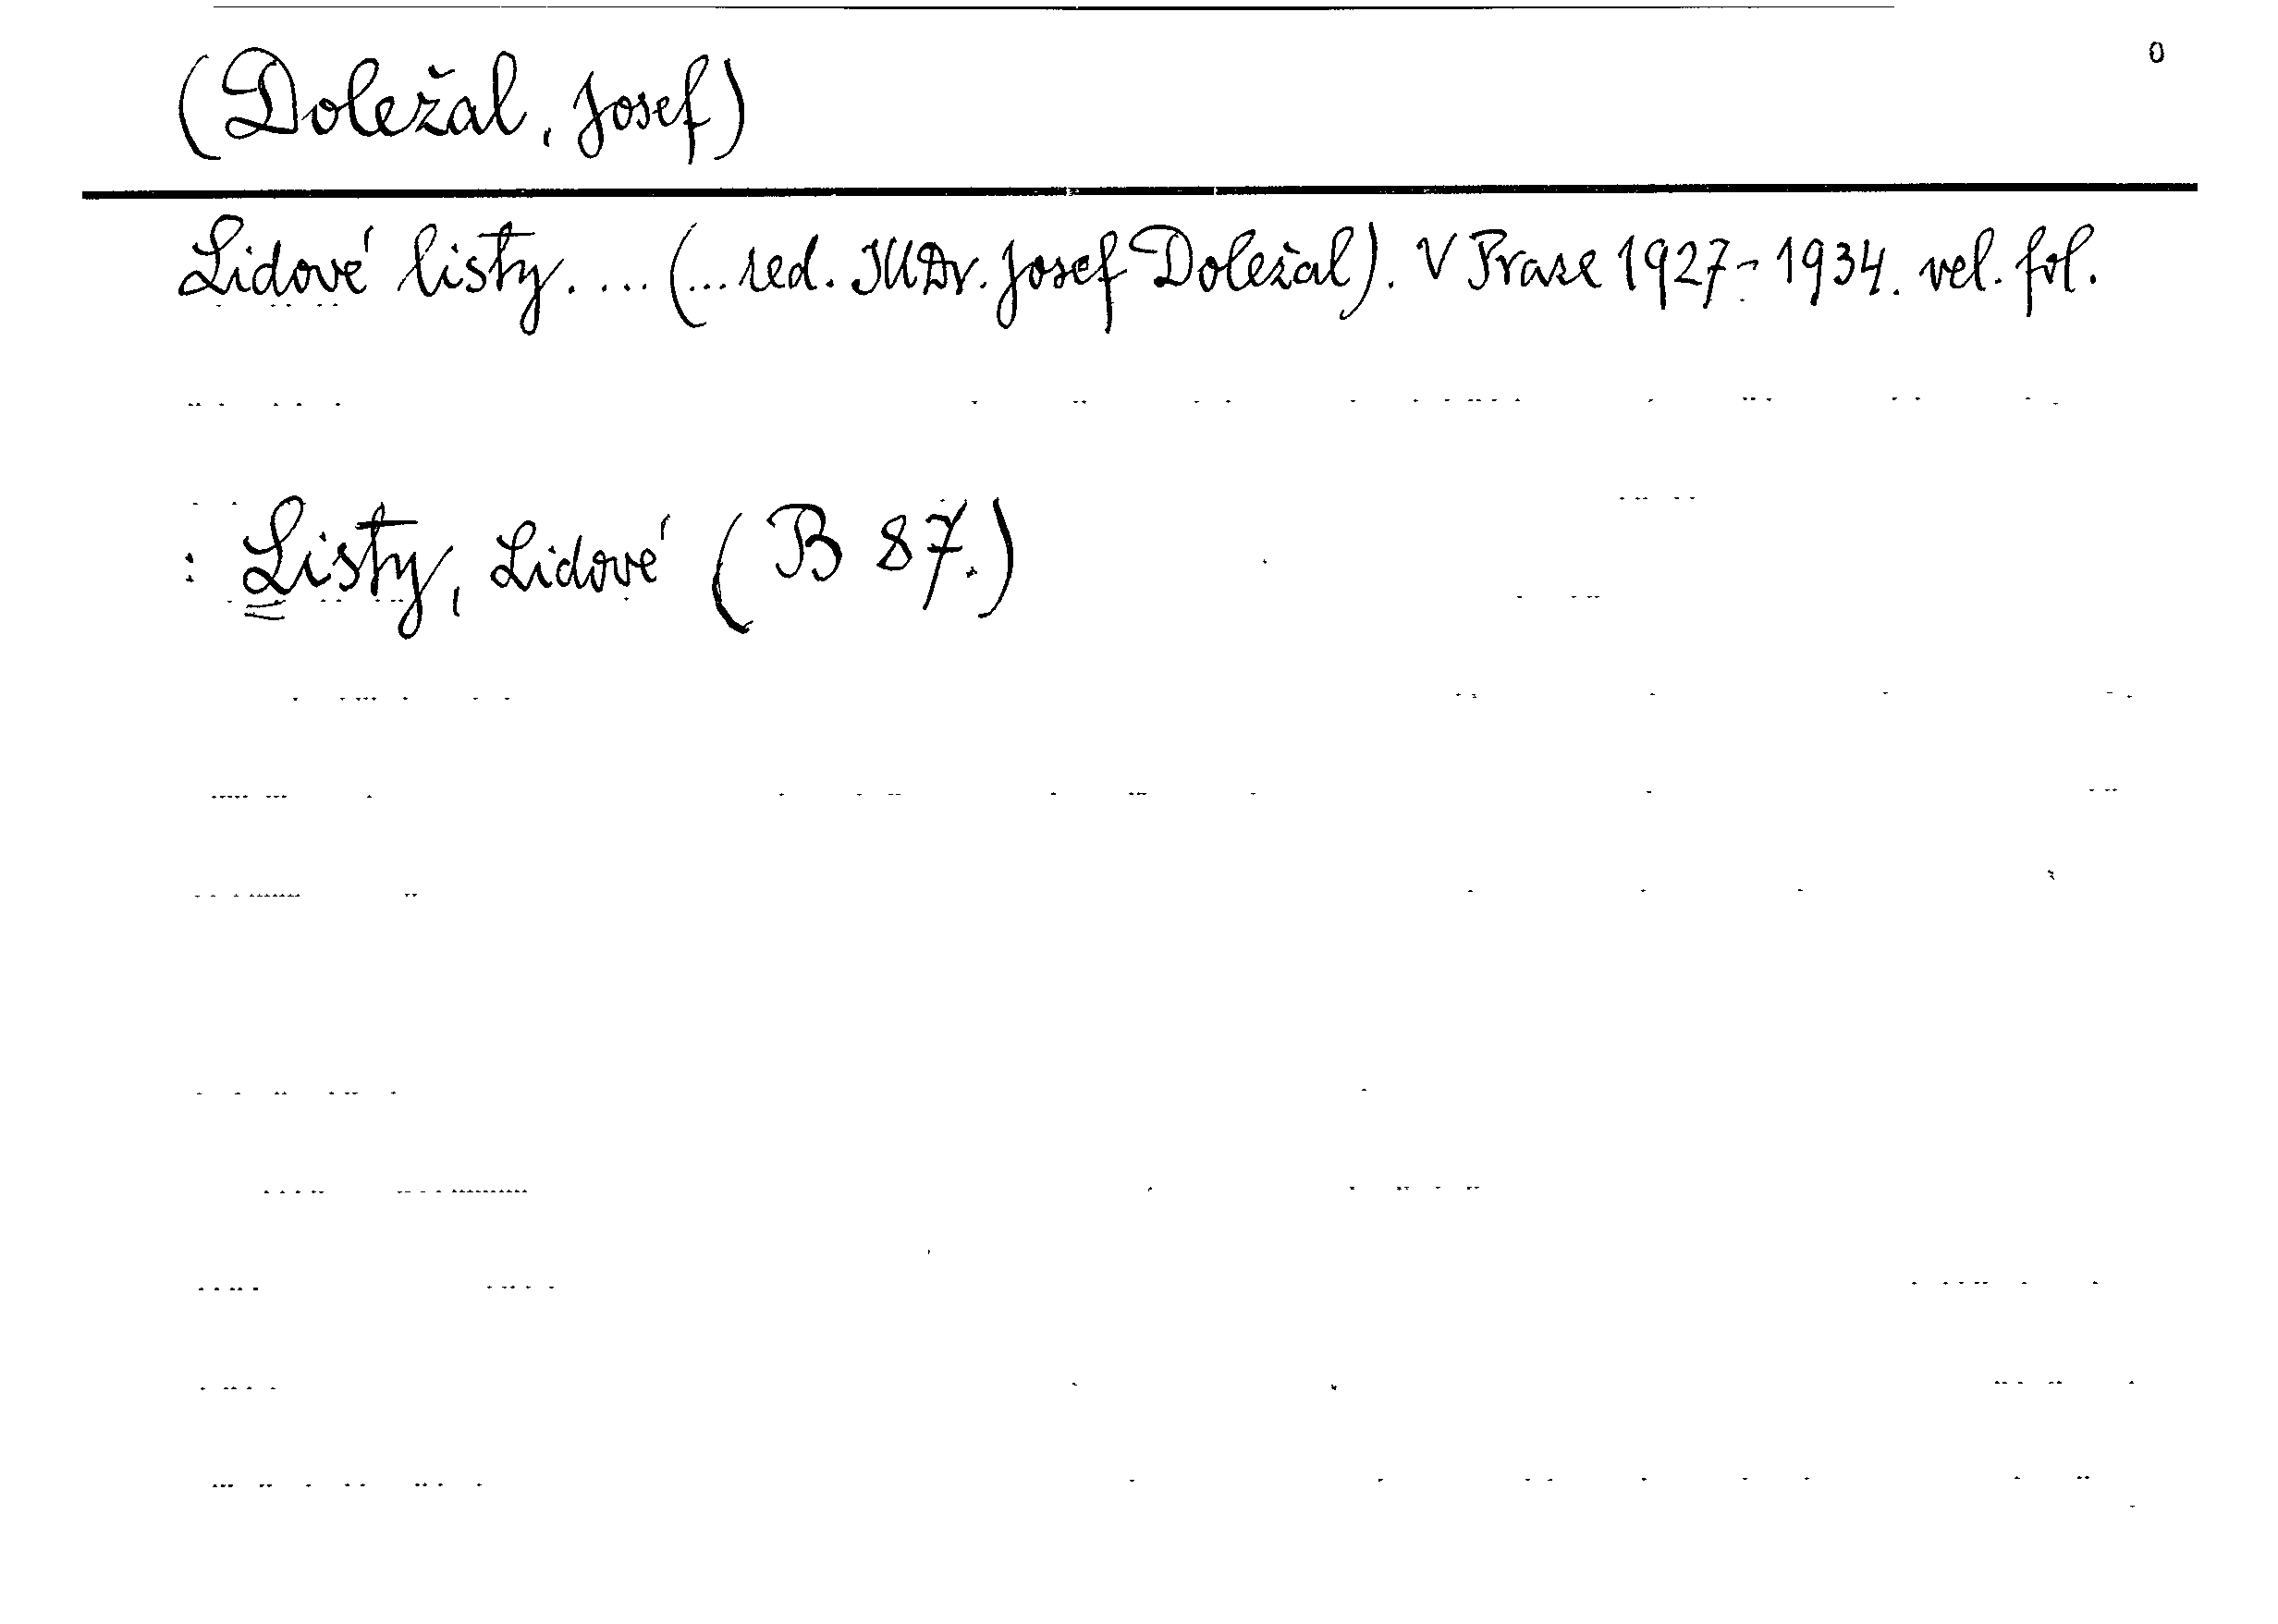 0
(Doležal, Josef)
Lidové listy. ... (... red. JUDr. Josef Doležal). V Praze 1927-1934. vel. fol.
: Listy, Lidové (B 87.)